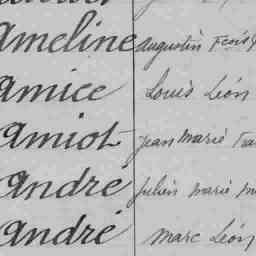 Ameline Augustin Frçois
Amice Louis Léon
Amiot Jean Marie
André Julien Marie
André Marc Léon